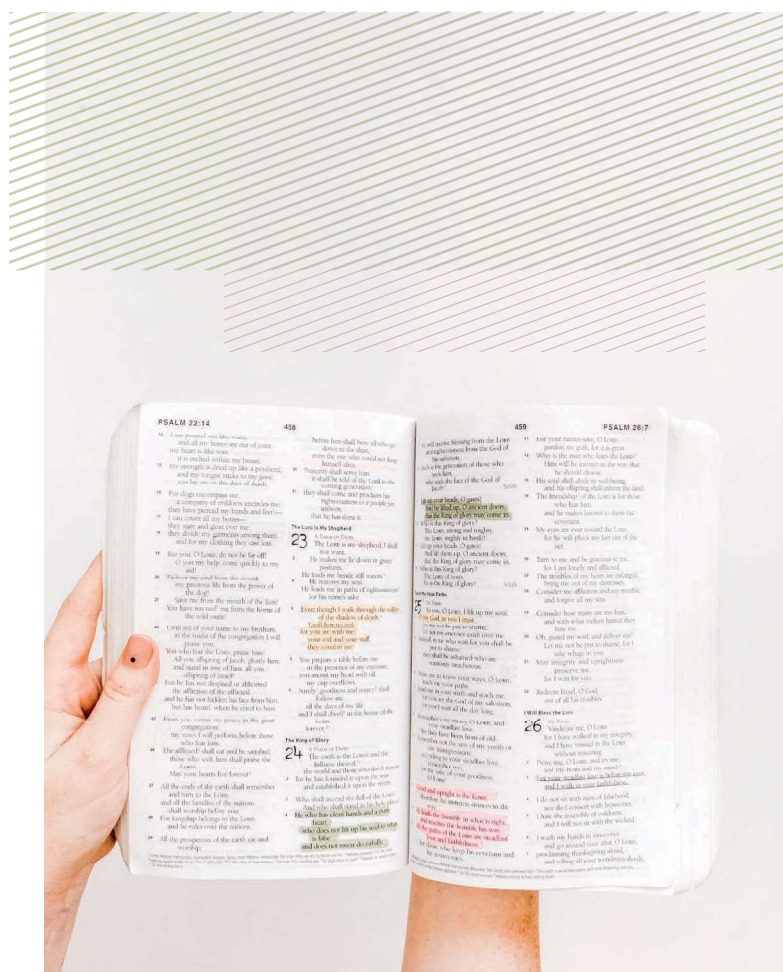 PSALM 22:14
458
and all my bones are out of joint;
my heart is like wax;
it is melted within my breast;
15 my strength is dried up like a potsherd,
and my tongue sticks to my jaws;
you lay me in the dust of death.
16 For dogs encompass me;
a company of evildoers encircles me;
they have pierced my hands and feet—
17 I can count all my bones—
they stare and gloat over me;
18 they divide my garments among them,
and for my clothing they cast lots.
19 But you, O LORD, do not be far off!
O you my help, come quickly to my
aid!
20 Deliver my soul from the sword,
my precious life from the power of
the dog!
21 Save me from the mouth of the lion!
You have rescued me from the horns of
the wild oxen!
22 I will tell of your name to my brothers;
in the midst of the congregation I will
praise you:
23 You who fear the LORD, praise him!
All you offspring of Jacob, glorify him,
and stand in awe of him, all you
offspring of Israel!
24 For he has not despised or abhorred
the affliction of the afflicted,
and he has not hidden his face from him,
but has heard, when he cried to him.
25 From you comes my praise in the great
congregation;
my vows I will perform before those
who fear him.
26 The afflicted shall eat and be satisfied;
those who seek him shall praise the
LORD!
May your hearts live forever!
27 All the ends of the earth shall remember
and turn to the LORD,
and all the families of the nations
shall worship before you.
28 For kingship belongs to the LORD,
and he rules over the nations.
29 All the prosperous of the earth eat and
worship;
before him shall bow all who go
down to the dust,
even the one who could not keep
himself alive.
30 Posterity shall serve him;
it shall be told of the Lord to the
coming generation;
31 they shall come and proclaim his
righteousness to a people yet
unborn,
that he has done it.
The LORD Is My Shepherd
23 A PSALM OF DAVID.
The LORD is my shepherd; I shall
not want.
2 He makes me lie down in green
pastures.
He leads me beside still waters.
3 He restores my soul.
He leads me in paths of righteousness
for his name's sake.
4 Even though I walk through the valley
of the shadow of death,
I will fear no evil,
for you are with me;
your rod and your staff,
they comfort me.
5 You prepare a table before me
in the presence of my enemies;
you anoint my head with oil;
my cup overflows.
6 Surely goodness and mercy shall
follow me
all the days of my life,
and I shall dwell in the house of the
LORD
forever.
The King of Glory
24 A PSALM OF DAVID.
The earth is the LORD's and the
fullness thereof,
the world and those who dwell therein,
2 for he has founded it upon the seas
and established it upon the rivers.
3 Who shall ascend the hill of the LORD?
And who shall stand in his holy place?
4 He who has clean hands and a pure
heart,
who does not lift up his soul to what
is false
and does not swear deceitfully.
459
PSALM 26:7
He will receive blessing from the LORD
and righteousness from the God of
his salvation.
Such is the generation of those who
seek him,
who seek the face of the God of
Jacob. Selah
Lift up your heads, O gates!
And be lifted up, O ancient doors,
that the King of glory may come in.
Who is this King of glory?
The LORD, strong and mighty,
the LORD, mighty in battle!
Lift up your heads, O gates!
And lift them up, O ancient doors,
that the King of glory may come in.
Who is this King of glory?
The LORD of hosts,
he is the King of glory! Selah
Teach Me Your Paths
25 OF DAVID.
To you, O LORD, I lift up my soul.
O my God, in you I trust;
let me not be put to shame;
let not my enemies exult over me.
Indeed, none who wait for you shall be
put to shame;
they shall be ashamed who are
wantonly treacherous.
Make me to know your ways, O LORD;
teach me your paths.
Lead me in your truth and teach me,
for you are the God of my salvation;
for you I wait all the day long.
Remember your mercy, O LORD, and
your steadfast love,
for they have been from of old.
Remember not the sins of my youth or
my transgressions;
according to your steadfast love
remember me,
for the sake of your goodness,
O LORD!
Good and upright is the LORD;
therefore he instructs sinners in the
way.
He leads the humble in what is right,
and teaches the humble his way.
All the paths of the LORD are steadfast
love and faithfulness,
for those who keep his covenant and
his testimonies.
11 For your name's sake, O LORD,
pardon my guilt, for it is great.
12 Who is the man who fears the LORD?
Him will he instruct in the way that
he should choose.
13 His soul shall abide in well-being,
and his offspring shall inherit the land.
14 The friendship of the LORD is for those
who fear him,
and he makes known to them his
covenant.
15 My eyes are ever toward the LORD,
for he will pluck my feet out of the
net.
16 Turn to me and be gracious to me,
for I am lonely and afflicted.
17 The troubles of my heart are enlarged;
bring me out of my distresses.
18 Consider my affliction and my trouble,
and forgive all my sins.
19 Consider how many are my foes,
and with what violent hatred they
hate me.
20 Oh, guard my soul, and deliver me!
Let me not be put to shame, for I
take refuge in you.
21 May integrity and uprightness
preserve me,
for I wait for you.
22 Redeem Israel, O God,
out of all his troubles.
I Will Bless the LORD
26 OF DAVID.
Vindicate me, O LORD,
for I have walked in my integrity,
and I have trusted in the LORD
without wavering.
2 Prove me, O LORD, and try me;
test my heart and my mind.
3 For your steadfast love is before my eyes,
and I walk in your faithfulness.
4 I do not sit with men of falsehood,
nor do I consort with hypocrites.
5 I hate the assembly of evildoers,
and I will not sit with the wicked.
6 I wash my hands in innocence
and go around your altar, O LORD,
7 proclaiming thanksgiving aloud,
and telling all your wondrous deeds.